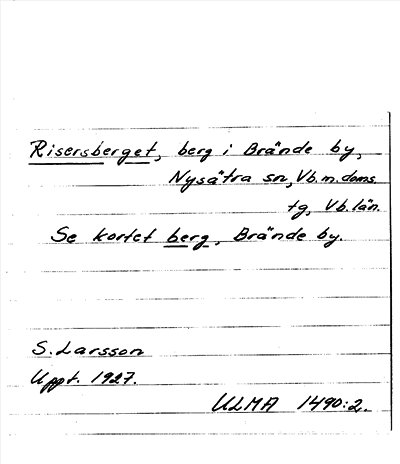 Risersberget, berg i Brände by,
Nysätra sn, Vb. m. doms.
tg, Vb. län.
Se kortet berg, Brände by.
S. Larsson
Uppt. 1927.
ULMA 1490:2.